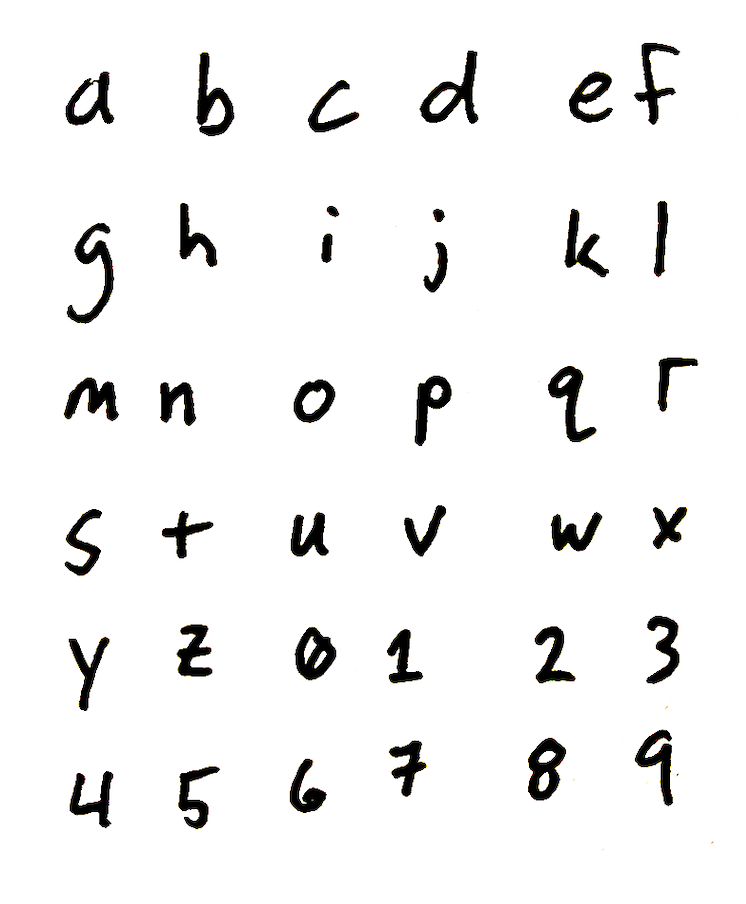 a b c d e f
g h i j k l
m n o p q r
s t u v w x
y z 0 1 2 3
4 5 6 7 8 9